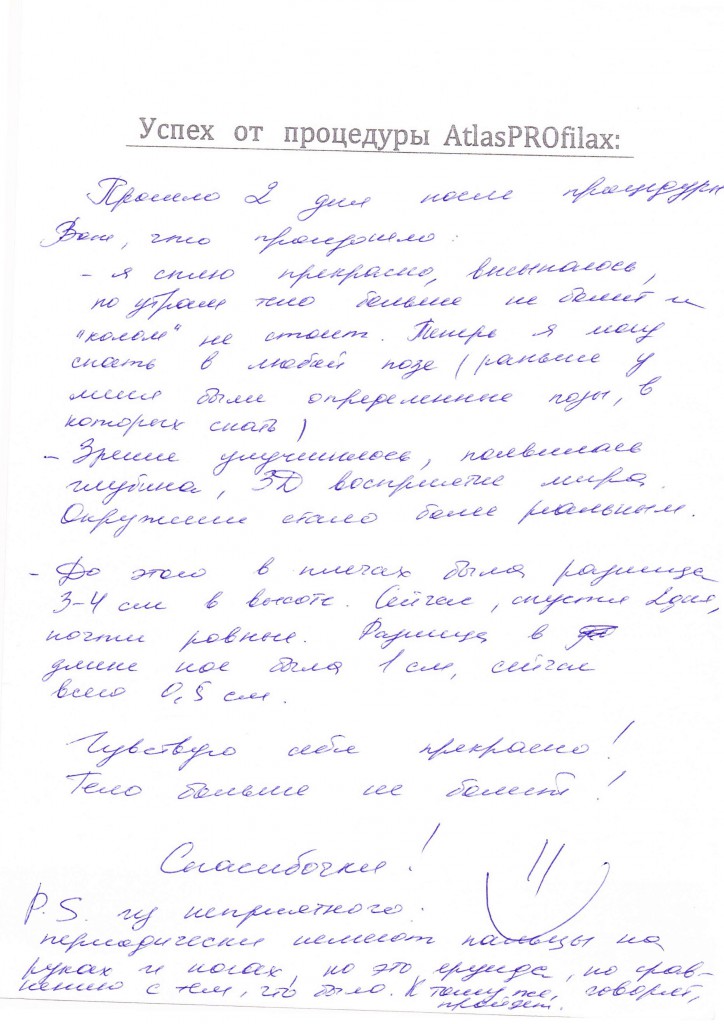 Успех от процедуры AtlasPROfilax:
Прошло 2 дня после процедуры
Вот, что произошло:
- я сплю прекрасно, высыпаюсь,
по утрам тело больше не болит и
"колом" не стоит. Теперь я могу
спать в любой позе (раньше у
меня были определенные позы, в
которых спать)
- Зрение улучшилось, появилась
глубина, 3D восприятие мира.
Окружение стало более реальным.
- До этого в плечах была разница
3-4 см в высоте. Сейчас, спустя 2 дня,
почти ровные. Разница в
длине ног была 1 см, сейчас
всего 0,5 см.
Чувствую себя прекрасно!
Тело больше не болит!
Спасибочки!
P.S. из неприятного:
периодически немеют пальцы на
руках и ногах, но это ерунда, по срав-
нению с тем, что было. К тому же, говорят,
пройдет.